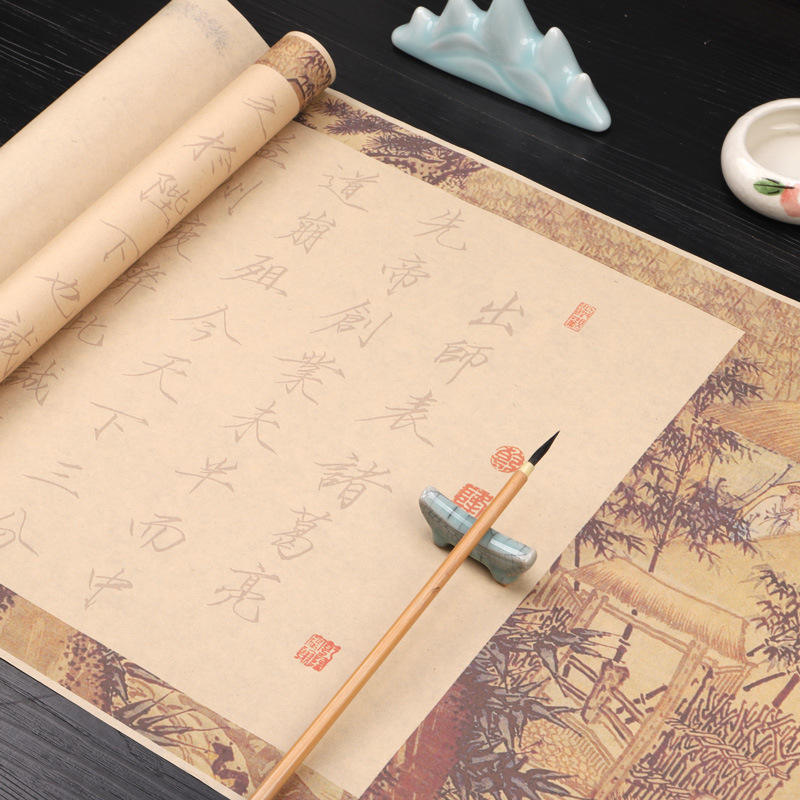 出師表諸葛亮
先帝創業未半而中
道崩殂今天下三分
益州疲弊此誠
之於陛下也誠